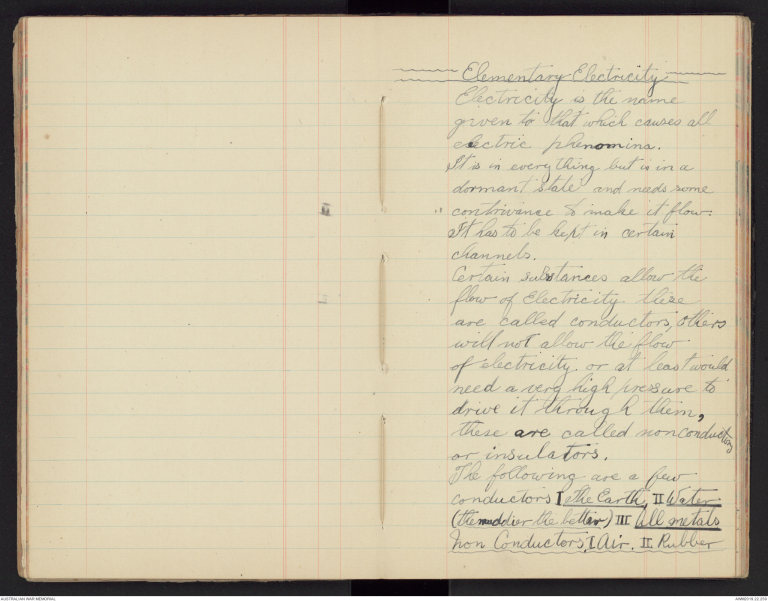 Elementary Electricity
Electricity is the name
given to that which causes all
electric phenomina.
It is in everything but is in a
dormant state and needs some
contrivance to make it flow.
It has to be kept in certain
channels.
Certain substances allow the
flow of Electricity these
are called conductors, others
will not allow the flow
of electricity. or at least would
need a very high pressure to
drive it through them,
these are called nonconductors
or insulators.
The following are a few
conductors I the Earth, II Water
(the muddier the better) III All metals
Non Conductors, I Air. II Rubber
AUSTRALIAN WAR MEMORIAL